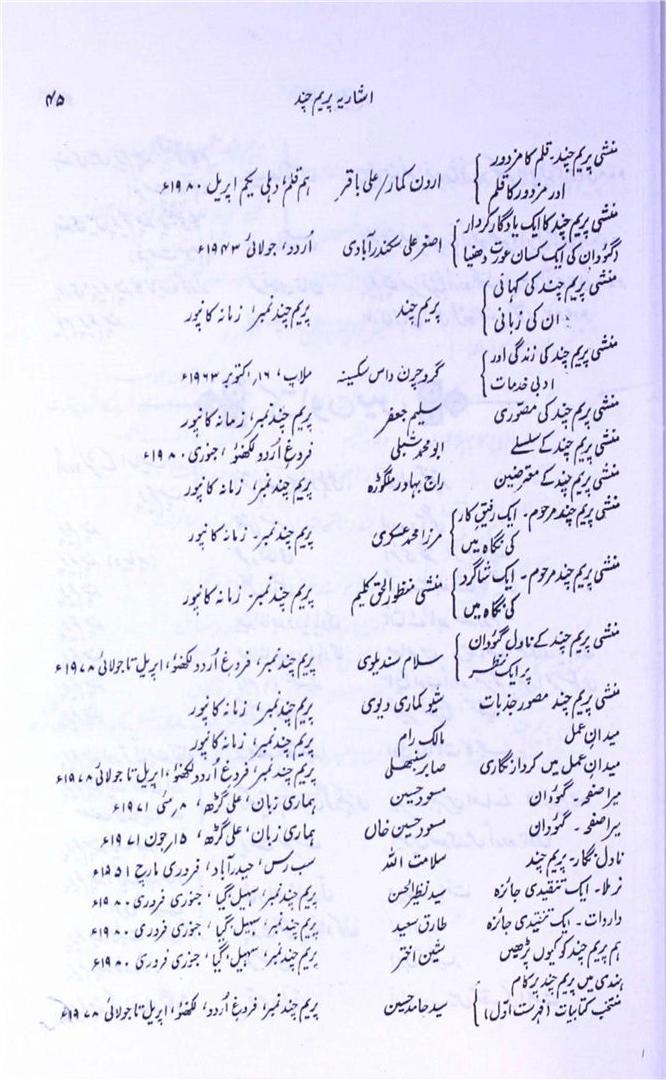 اشاریہ پریم چند
۴۵
منشی پریم چند۔ قلم کا مزدور اور مزدور کا قلم } ارون کمار/علی باقر ہم قلم دہلی یکم اپریل ۱۹۸۰ء
منشی پریم چند کا ایک یادگار کردار (گئودان کی ایک کسان عورت دھنیا } اصغر علی سکندرآبادی اُردو، جولائی ۱۹۴۳ء
منشی پریم چند کی کہانی ان کی زبانی } پریم چند پریم چند نمبر، زمانہ کانپور
منشی پریم چند کی زندگی اور ادبی خدمات } گروچرن داس سکسینہ ملاپ، ۱۶؍اکتوبر ۱۹۶۳ء
منشی پریم چند کی مصوّری سلیم جعفر پریم چند نمبر، زمانہ کانپور
منشی پریم چند کے سلسلے ابو محمد شبلی فروغِ اُردو لکھنؤ، جنوری ۱۹۸۰ء
منشی پریم چند کے معترضین راج بہادر لمگوڑہ پریم چند نمبر، زمانہ کانپور
منشی پریم چند مرحوم۔ ایک رفیقِ کار کی نگاہ میں } مرزا محمد عسکری پریم چند نمبر۔ زمانہ کانپور
منشی پریم چند مرحوم۔ ایک شاگرد کی نگاہ میں } منشی منظور الحق کلیم پریم چند نمبر۔ زمانہ کانپور
منشی پریم چند کے ناول گئودان پر ایک نظر } سلام سندیلوی پریم چند نمبر، فروغِ اُردو لکھنؤ، اپریل تا جولائی ۱۹۷۸ء
منشی پریم چند مصورِ جذبات شیو کماری دیوی پریم چند نمبر، زمانہ کانپور
میدانِ عمل مالک رام پریم چند نمبر، زمانہ کانپور
میدانِ عمل میں کردار نگاری صابر سنبھلی پریم چند نمبر، فروغِ اُردو لکھنؤ، اپریل تا جولائی ۱۹۷۸ء
میرا صفحہ۔ گئودان مسعود حسین ہماری زبان، علی گڑھ، ۸ مئی ۱۹۷۱ء
میرا صفحہ۔ گئودان مسعود حسین خاں ہماری زبان، علی گڑھ، ۱۵ جون ۱۹۷۱ء
ناول نگار۔ پریم چند سلامت اللہ سب رس، حیدرآباد، فروری مارچ ۱۹۵۱ء
نرملا۔ ایک تنقیدی جائزہ سید ظفر الحسن پریم چند نمبر، سہیل، گیا، جنوری فروری ۱۹۸۰ء
واردات۔ ایک تنقیدی جائزہ طارق سعید پریم چند نمبر، سہیل، گیا، جنوری فروری ۱۹۸۰ء
ہم پریم چند کو کیوں پڑھیں شین اختر پریم چند نمبر، سہیل، گیا، جنوری فروری ۱۹۸۰ء
ہندی میں پریم چند پر کام
منتخب کتابیات (فہرست اوّل) } سید حامد حسین پریم چند نمبر، فروغِ اُردو، لکھنؤ، اپریل تا جولائی ۱۹۷۸ء